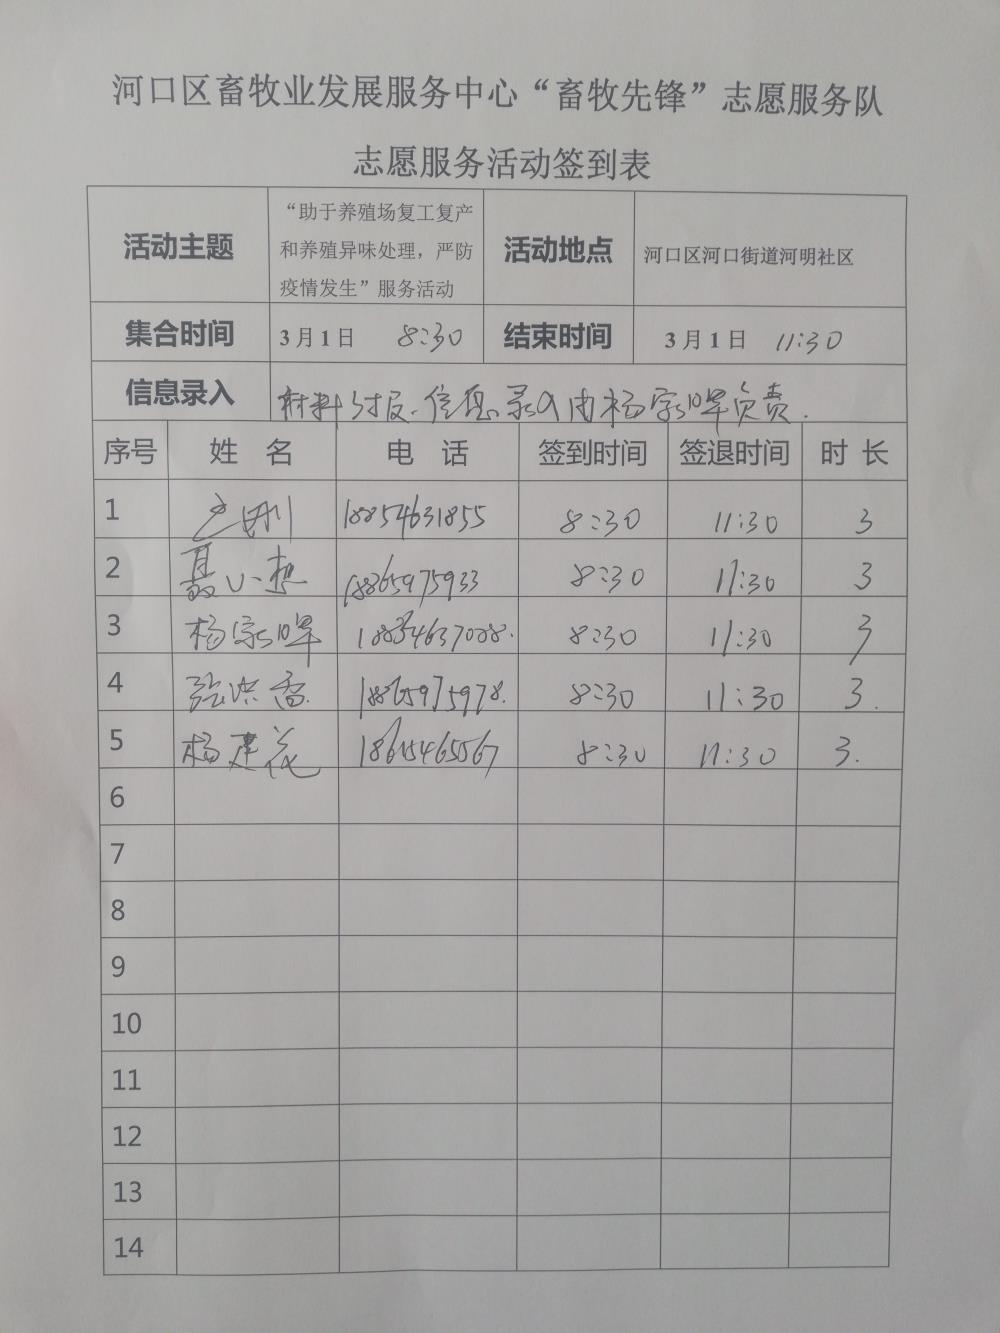 河口区畜牧业发展服务中心“畜牧先锋”志愿服务队
志愿服务活动签到表
活动主题 “助于养殖场复工复产 活动地点 河口区河口街道河明社区
和养殖异味处理，严防
疫情发生”服务活动
集合时间 3月1日 8:30 结束时间 3月1日 11:30
信息录入 材料 信息录入由杨家晖负责.
序号 姓 名 电 话 签到时间 签退时间 时 长
1 18854631855 8:30 11:30 3
2 聂小想 18865975933 8:30 11:30 3
3 杨家晖 8:30 11:30 3
4 张洪香 18865975978. 8:30 11:30 3.
5 杨建花 8:30 11:30 3.
6
7
8
9
10
11
12
13
14